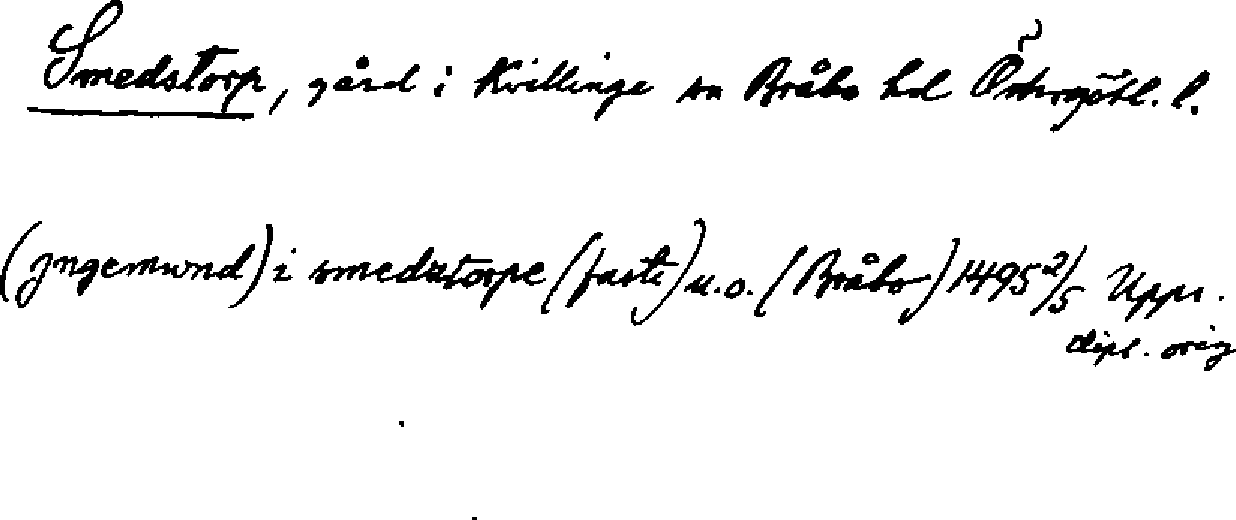 Smedstorp, gård i Kvillinge sn Bråbo hd Östergötl. l.
(jngemund) i smedztorpe (faste) u.o. (Bråbo) 1495 2/5 Upps.
dipl. orig